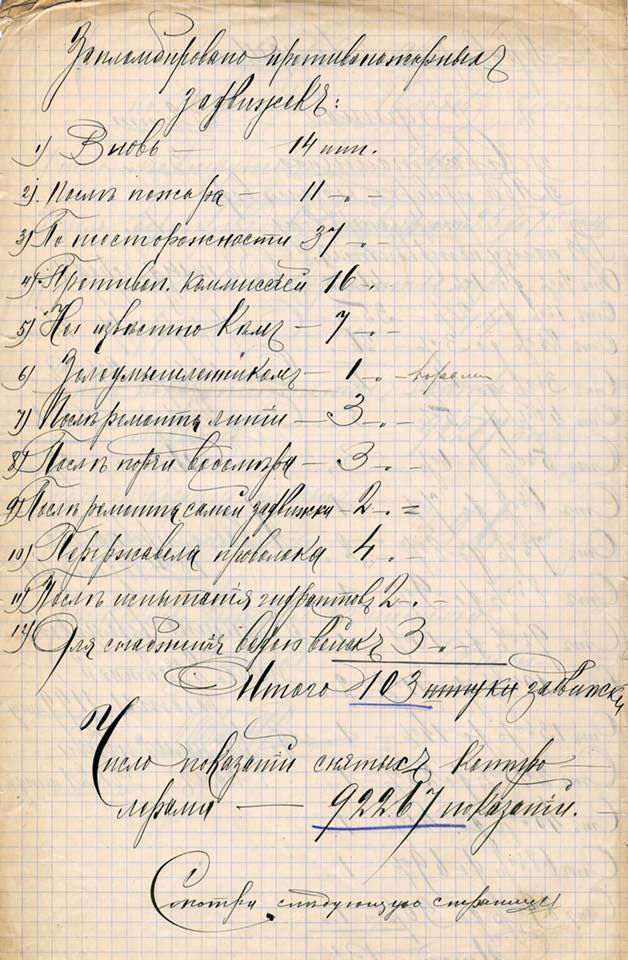 Запломбировано противопожарныхъ
задвижекъ:
1) Вновь — 14 шт.
2) Послѣ пожара — 11 -"-
3) По неосторожности 37 -"-
4) Противоп. коммиссіей 16 -"-
5) Не извѣстно кѣмъ — 7 -"-
6) Злоумышленникомъ — 1 -"- ворами
7) Послѣ ремонта линіи — 3 -"-
8) Послѣ порчи водомѣра — 3 -"-
9) Послѣ ремонта самой задвижки — 2 -"-
10) Перержавела проволока 4 -"-
11) Послѣ испытанія гидрантовъ 2 -"-
12) Для снабженія водою войскъ 3 -"-
Итого 103 штуки задвижки
Число показаній снятыхъ контро-
лерами — 92267 показаній.
Смотри слѣдующую страницу